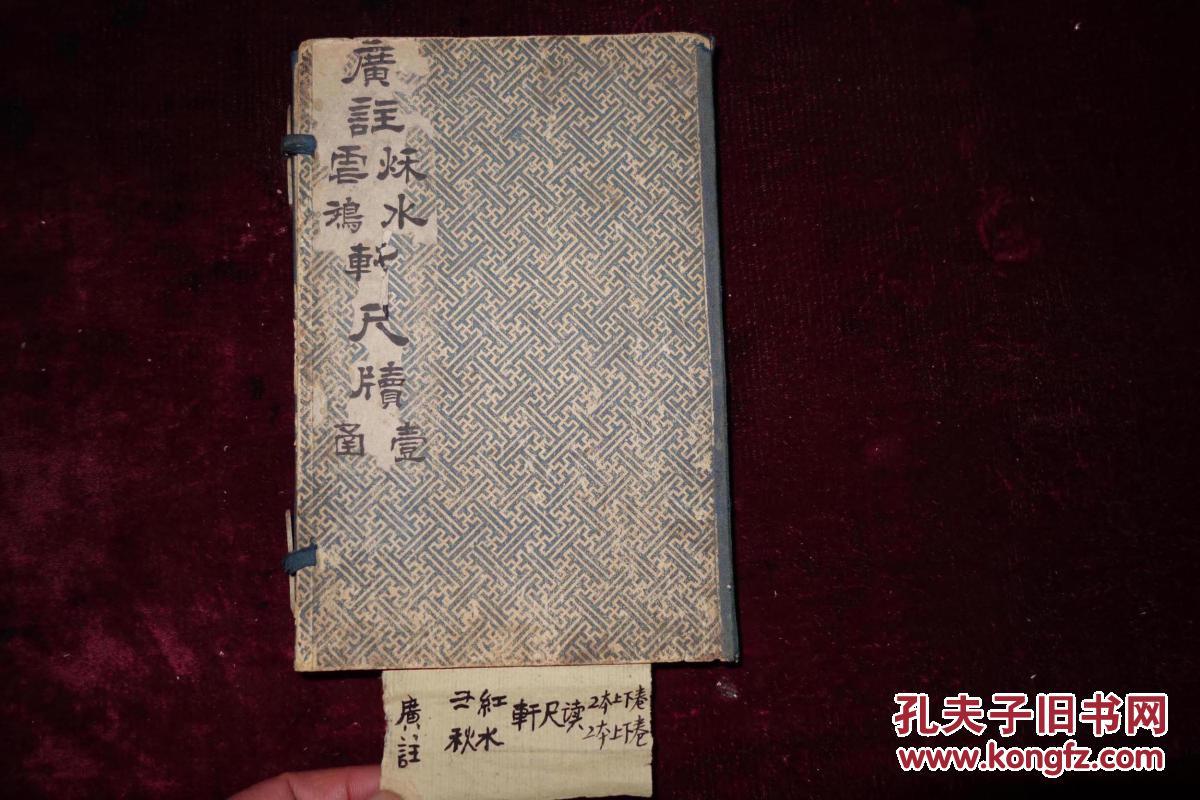 廣註
秌水
雪鴻
軒尺牘
壹函
廣註
紅
秋水
軒尺读
2本上下卷
2本上下卷
孔夫子旧书网
www.kongfz.com